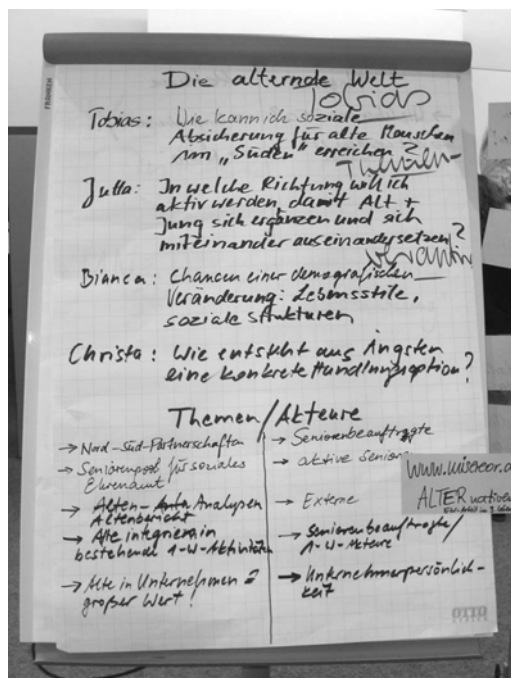 Die alternde Welt
Tobias
Tobias: Wie kann ich soziale
Absicherung für alte Menschen
im „Süden" erreichen?
Jutta: In welche Richtung will ich
aktiv werden, damit Alt +
Jung sich ergänzen und sich
miteinander auseinandersetzen?
Bianca: Chancen einer demografischen
Veränderung: Lebensstile,
soziale Strukturen
Christa: Wie entsteht aus Ängsten
eine konkrete Handlungsoption?
Themen/Akteure
→ Nord-Süd-Partnerschaften
→ Seniorenpool für soziales
Ehrenamt
→ Alten- Analysen
Altenbericht
→ Alte integrieren in
bestehende 1-W-Aktivitäten
→ Alte in Unternehmen =
großer Wert!
→ Seniorenbeauftragte
→ aktive Senior
→ Externe
→ Seniorenbeauftragte/
1-W-Akteure
→ Unternehmerpersönlich-
keit
www.misereor.d
ALTERnativen
FRANKEN
OTTO